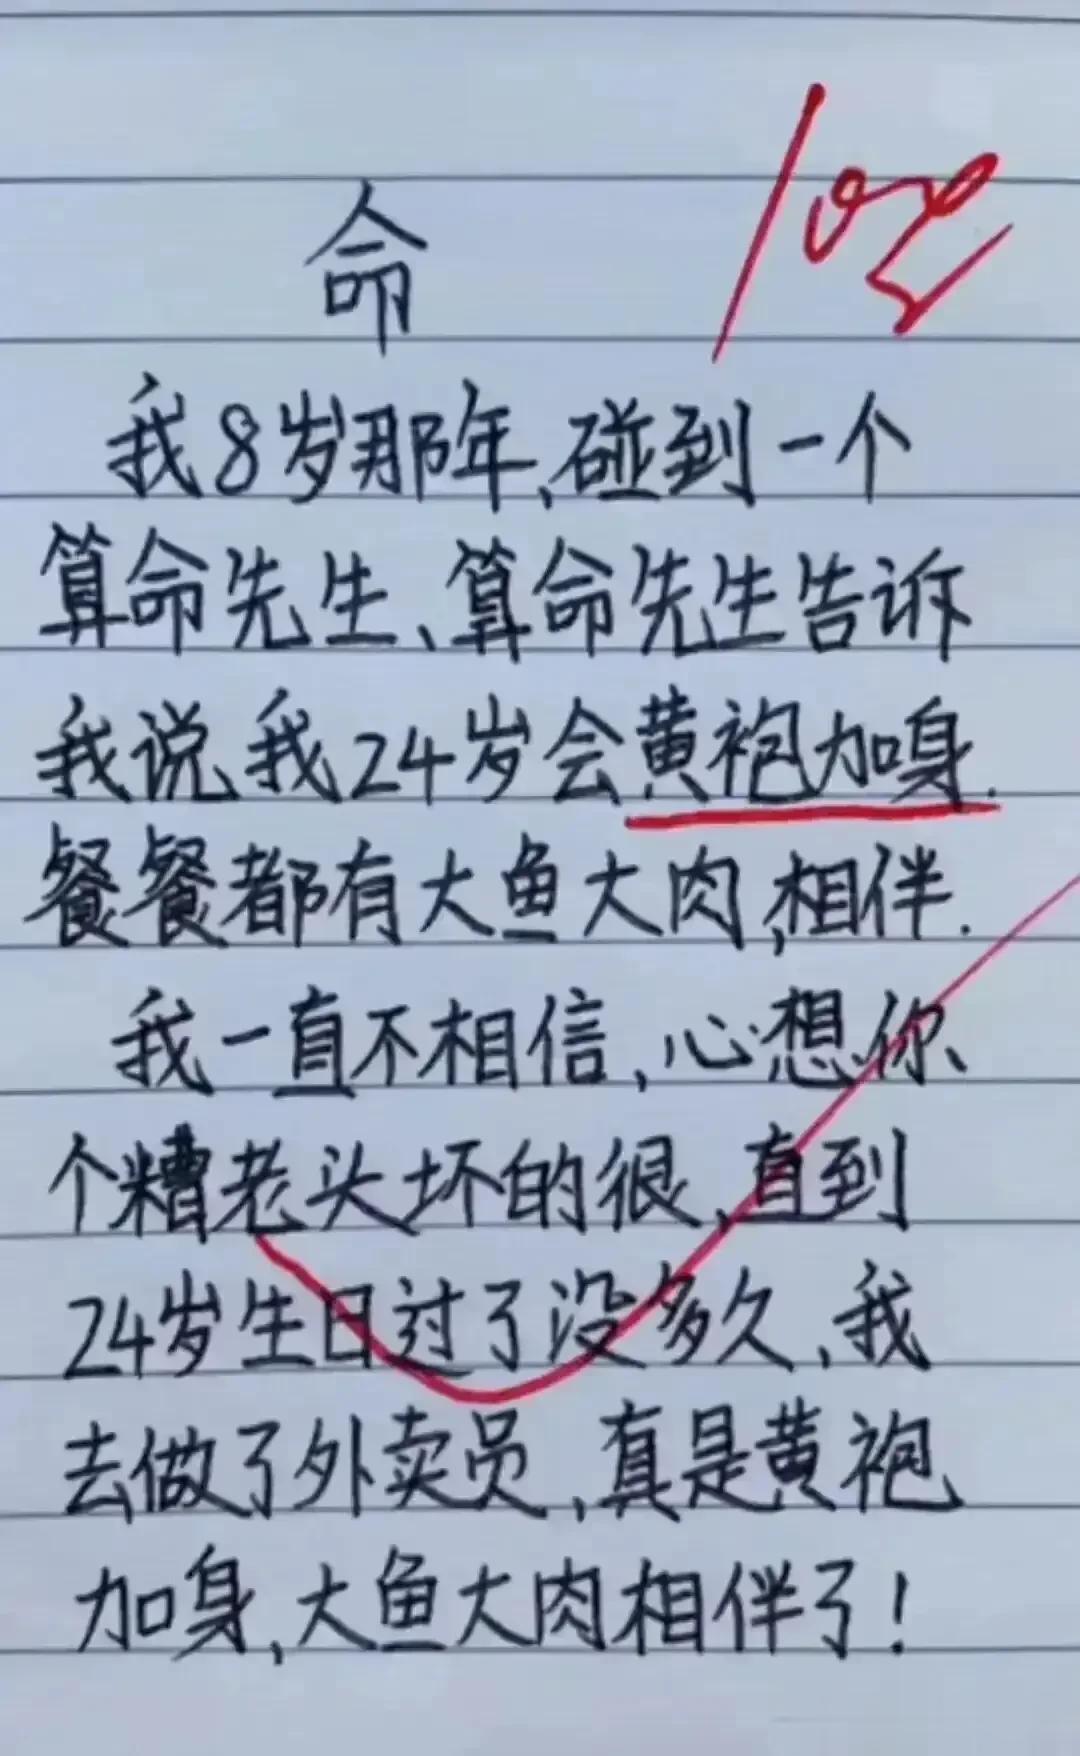 100
命
我8岁那年,碰到一个
算命先生、算命先生告诉
我说,我24岁会黄袍加身.
餐餐都有大鱼大肉,相伴.
我一直不相信,心想,你
个糟老头坏的很,直到
24岁生日过了没多久,我
去做了外卖员,真是黄袍
加身,大鱼大肉相伴了!